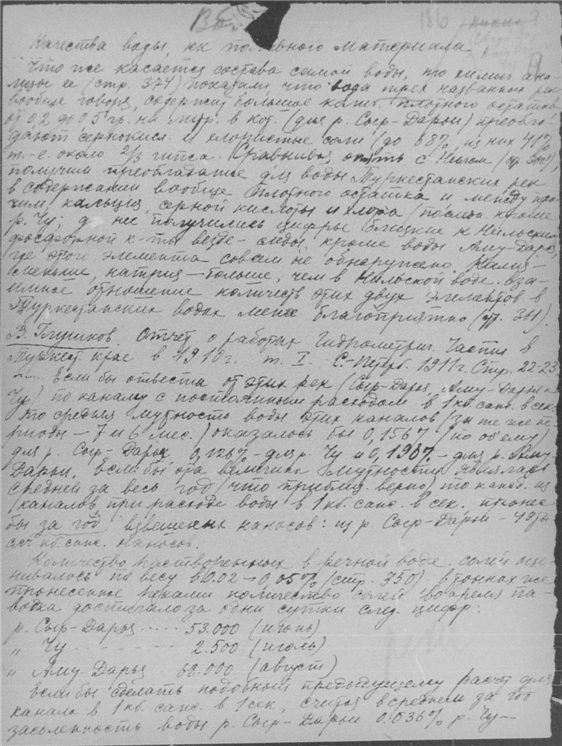 Качества воды, как поливного материала
Что же касается состава самой воды, то химич. ана-
лизы ее (стр. 347) показали, что вода трех названных рек
вообще говоря, содержит большое колич. плотного остатка
от 0,2 до 0,5 гр. на литр, в кот. (для р. Сыр-Дарьи) преобла-
дают сернокисл. и хлористые соли (до 68% из них 41%
т.-е. около 2/3 гипса. Сравнивая опять с Нилом
получим преобладание для воды Туркестанских рек
в содержании вообще плотного остатка и между про-
чим кальция, серной кислоты и хлора
р. Чу, для нее получились цифры близкие к Нильским
фосфорной к-ты везде следы, кроме воды Аму-Дарьи,
где этого элемента совсем не обнаружено. Калия -
меньше, натрия - больше, чем в Нильской воде. Вза-
имное отношение количеств этих двух элементов в
Туркестанских водах менее благоприятно
В. Глушков. Отчет о работах Гидрометрич. Части в
Туркест. крае в 1910 г. т. I. С.-Петерб. 1911 г. Стр. 22-23
Если бы отвести от этих рек (Сыр-Дарья, Аму-Дарья и
Чу) по каналу с постоянным расходом в 1 куб. саж. в сек.
то средняя мутность воды этих каналов (за те же пе-
риоды - 7 и 6 мес.) оказалось бы 0,156% (по объему)
для р. Сыр-Дарьи, для р. Чу и для р. Аму-
Дарьи, если бы эта величина мутности являлась
средней за весь год (что приблиз. верно) то кажд. из
каналов при расходе воды в 1 кб. саж. в сек. пронес
бы за год взвешенных наносов: из р. Сыр-Дарьи -
кб. саж. наносов.
Количество растворенных в речной воде солей оце-
нивалось по весу в 0.02 - 0,05% (стр. 350) в тоннах же
пронесенное реками количество солей во время па-
водка достигало за одни сутки след. цифр:
р. Сыр-Дарья ..... 53.000 (июнь)
" Чу ........ 2.500 (июль)
" Аму-Дарья (август)
Если бы сделать подобный предыдущему расчет для
канала в 1 кб. саж. в 1 сек., считая в среднем за год
засоленность воды р. Сыр-Дарьи 0.036% р. Чу -